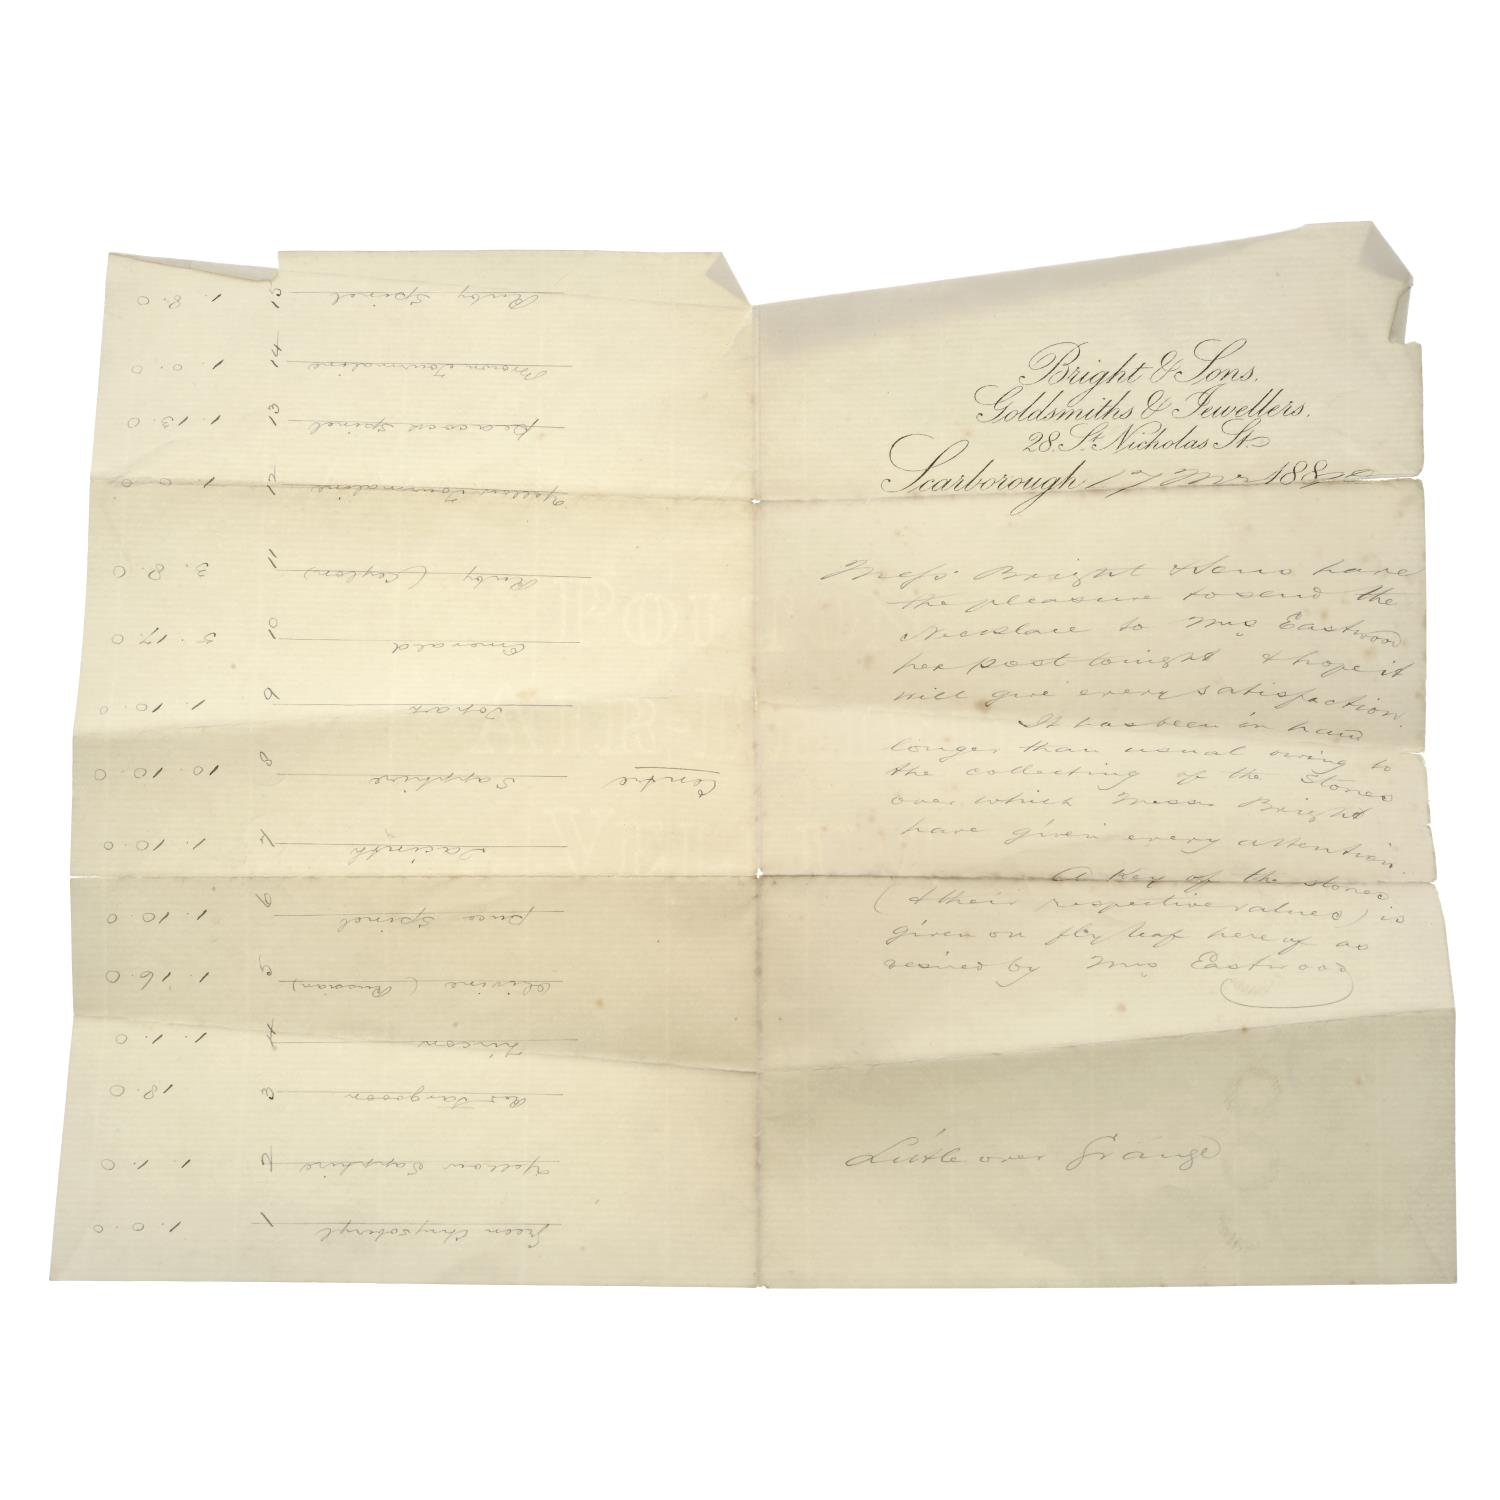 Bright & Sons.
Goldsmiths & Jewellers.
28. St. Nicholas St.
Scarborough 17 1889
Messrs Bright & Sons have
the pleasure to send the
Necklace to Mrs Eastwood
per post tonight & hope it
will give every satisfaction.
It has been in hand
longer than usual owing to
the collecting of the Stones
over which Messrs Bright
have given every attention.
A Key of the stones
(& their respective values) is
given on fly leaf here of as
desired by Mrs Eastwood
Little over Grange
Green Chrysoberyl 1 1.0.0
Yellow Sapphire 2 1.1.0
Red Jargoon 3 18.0
Zircon 4 1.1.0
Olivine (Russian) 5 1.16.0
puce Spinel 6 1.10.0
Jacinth 7 1.10.0
Centre Sapphire 8 10.10.0
Topaz 9 1.10.0
Emerald 10 5.17.0
Ruby (Ceylon) 11 3.8.0
Yellow Tourmaline 12 1.0.0
peacock Spinel 13 1.13.0
Brown Tourmaline 14 1.0.0
Ruby Spinel 15 1.8.0